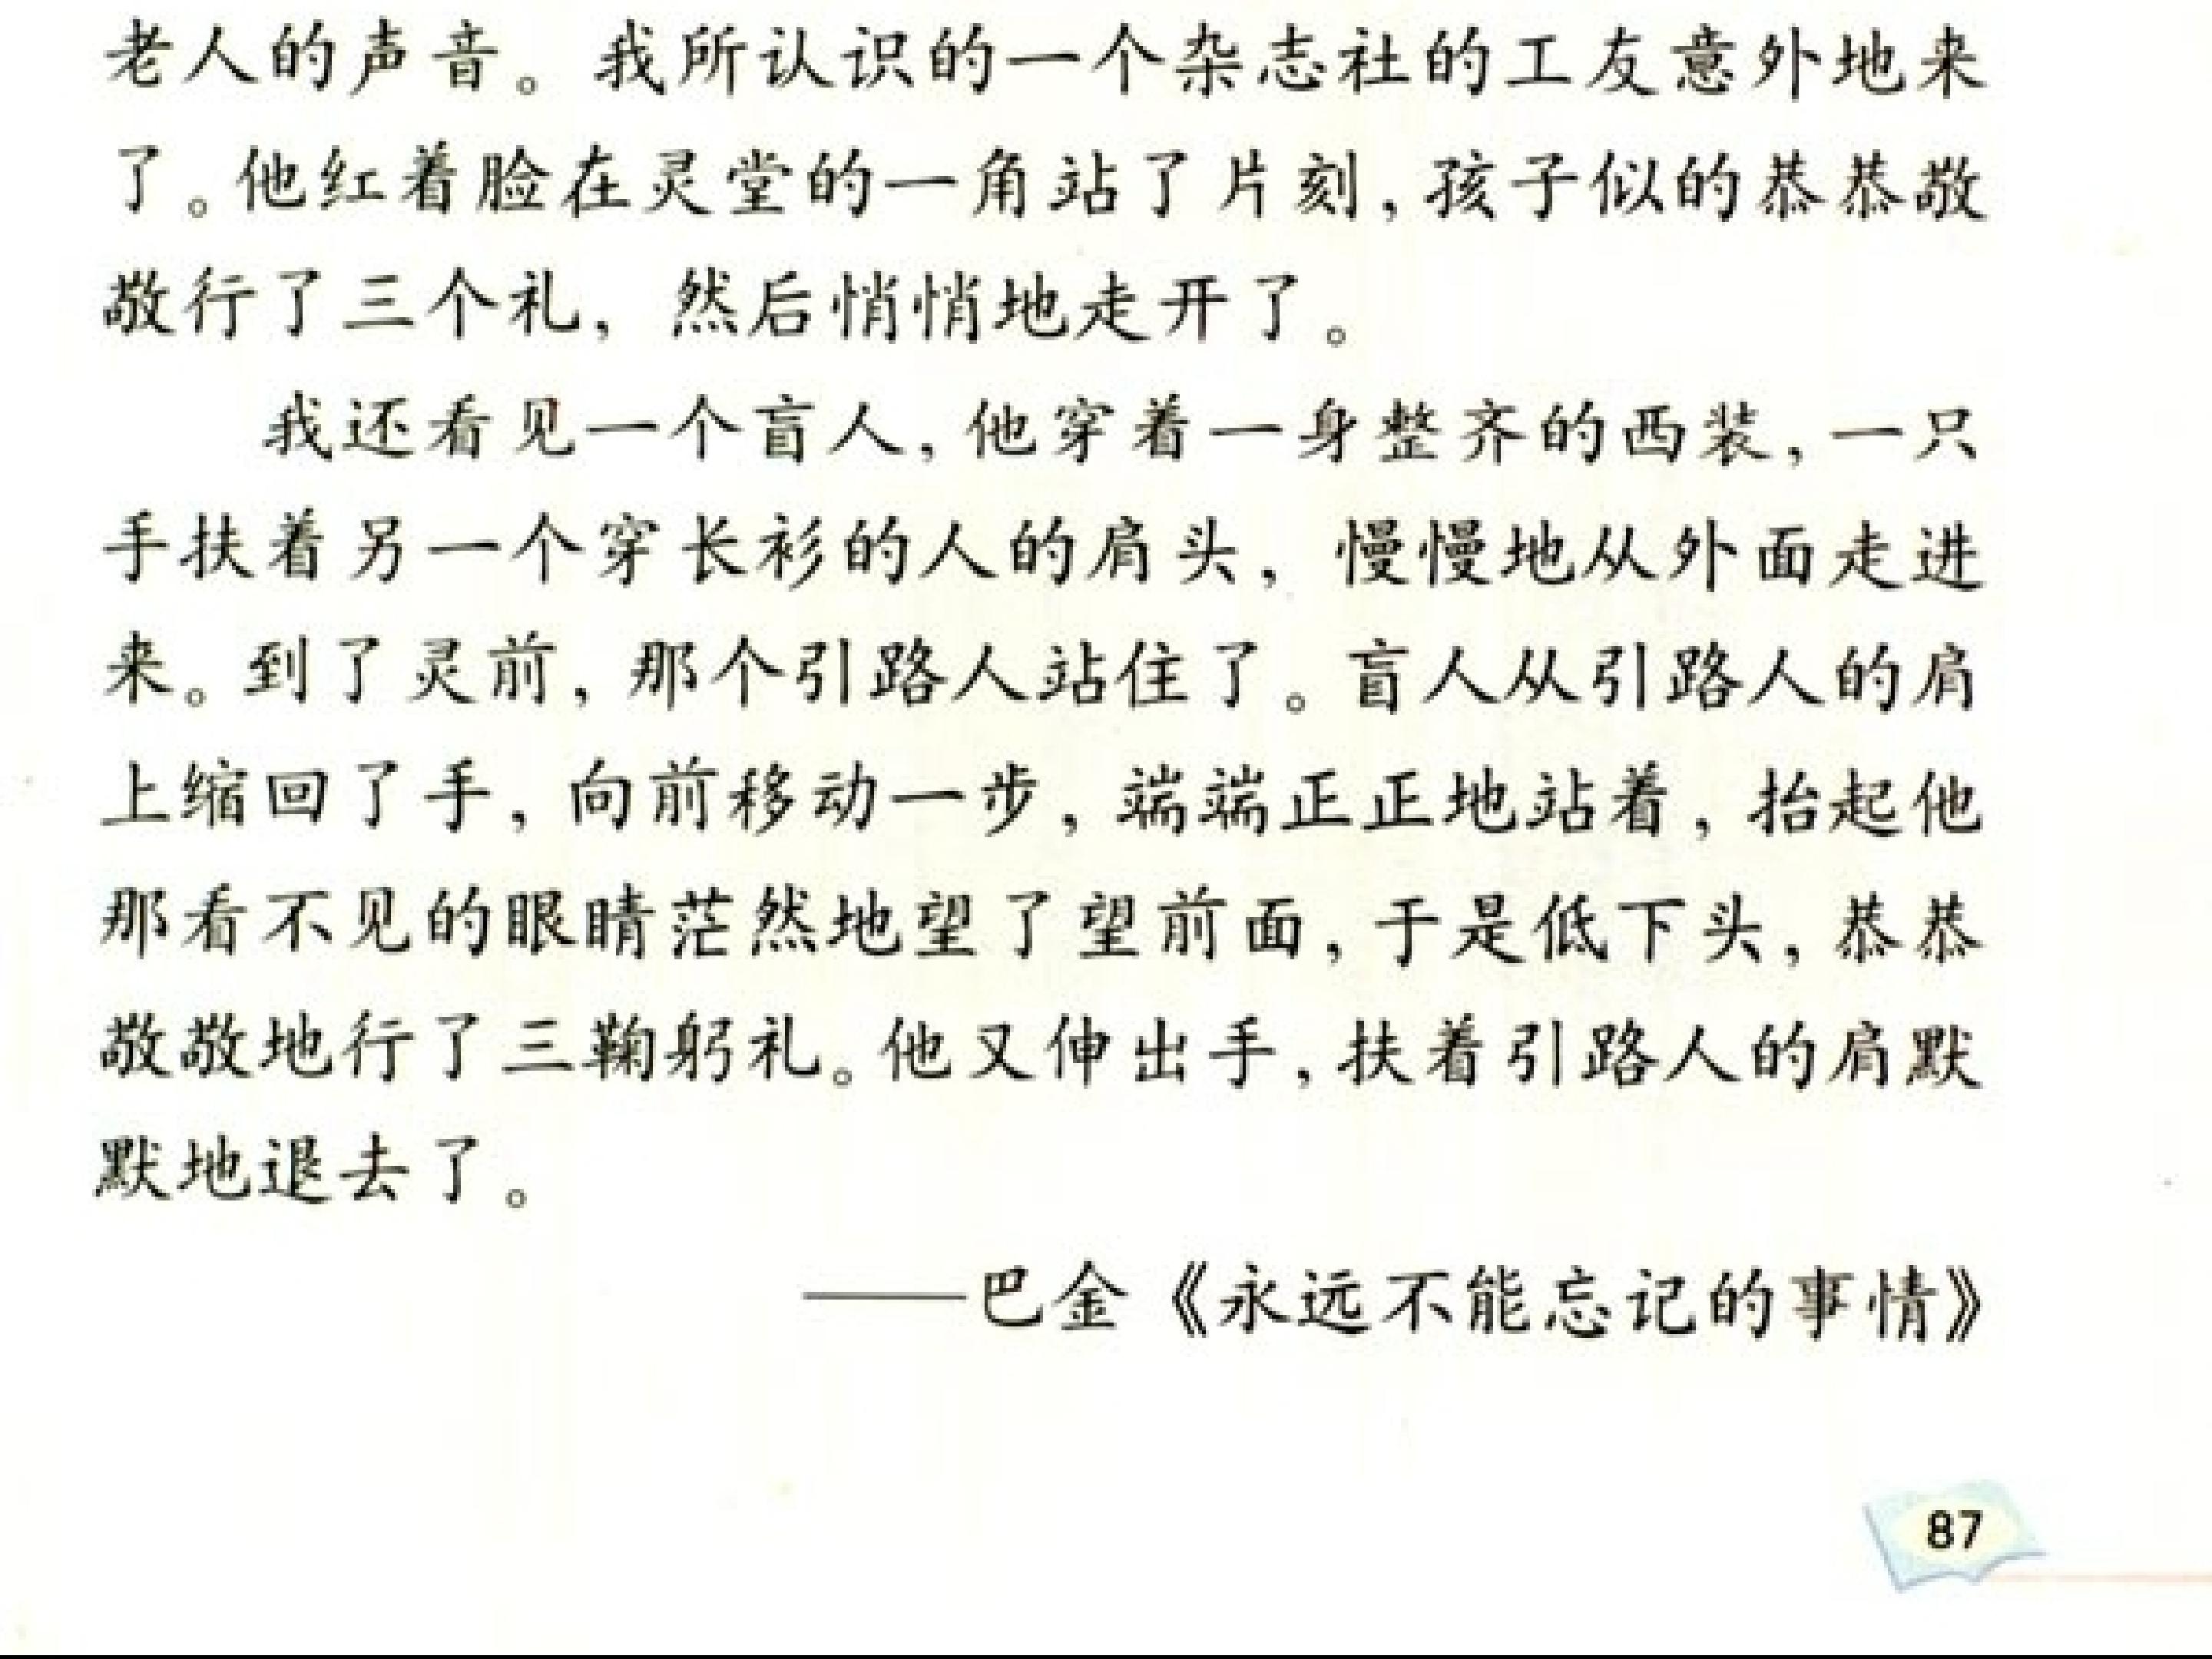 老人的声音。我所认识的一个杂志社的工友意外地来
了。他红着脸在灵堂的一角站了片刻，孩子似的恭恭敬
敬行了三个礼，然后悄悄地走开了。
我还看见一个盲人，他穿着一身整齐的西装，一只
手扶着另一个穿长衫的人的肩头，慢慢地从外面走进
来。到了灵前，那个引路人站住了。盲人从引路人的肩
上缩回了手，向前移动一步，端端正正地站着，抬起他
那看不见的眼睛茫然地望了望前面，于是低下头，恭恭
敬敬地行了三鞠躬礼。他又伸出手，扶着引路人的肩默
默地退去了。
——巴金《永远不能忘记的事情》
87